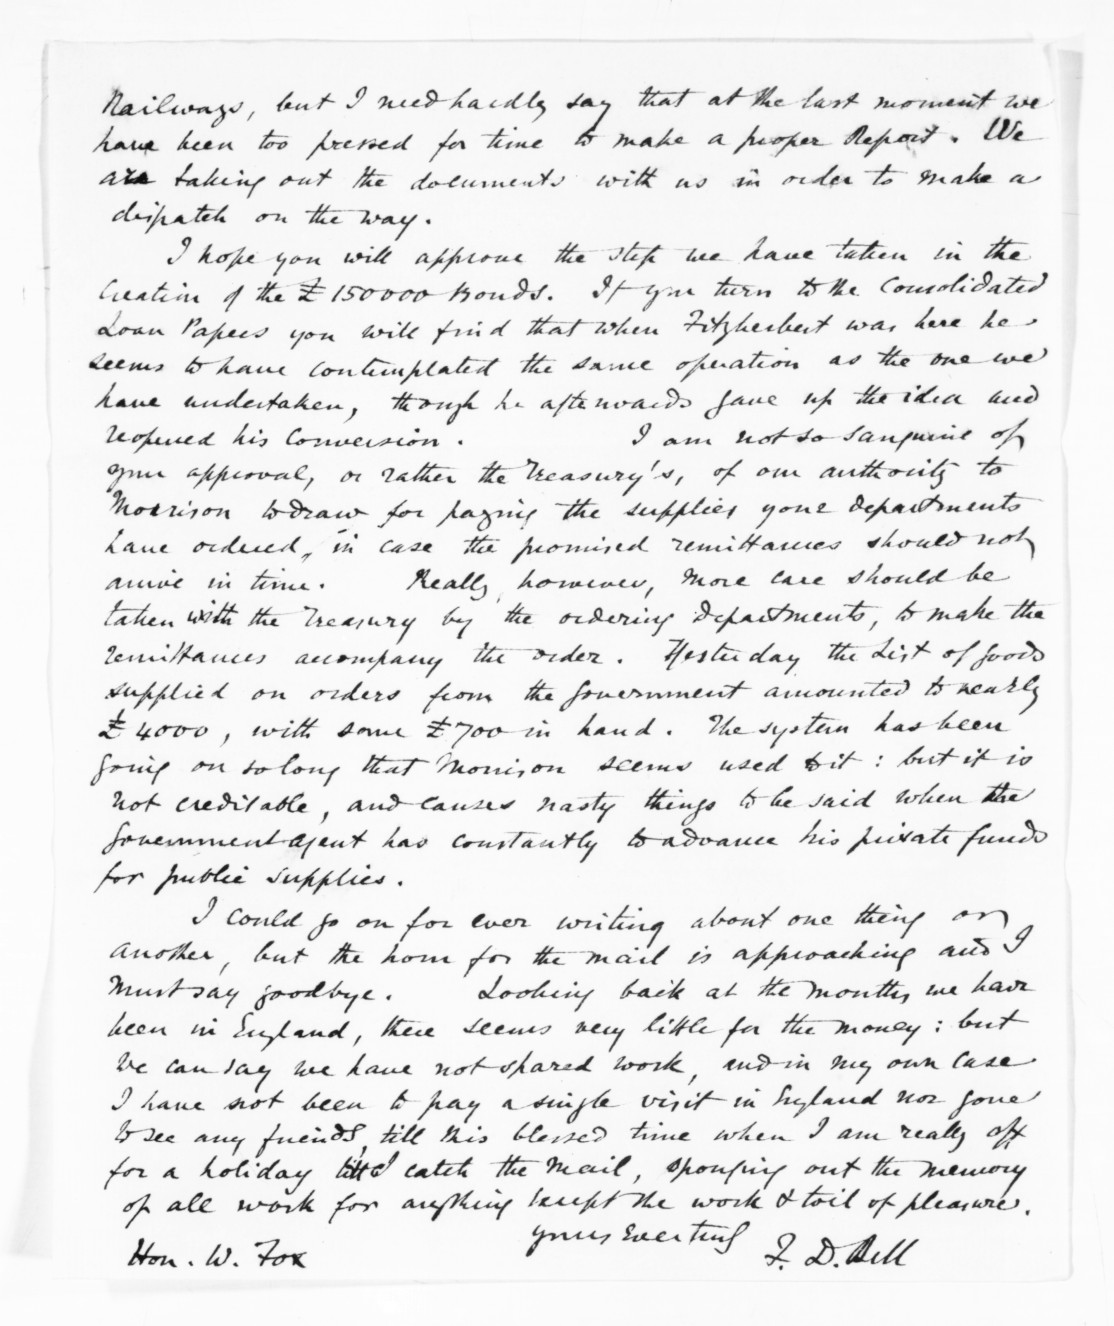 Railways, but I need hardly say that at the last moment we
have been too pressed for time to make a proper Report. We
are taking out the documents with us in order to make a
dispatch on the way.
I hope you will approve the step we have taken in the
creation of the £150000 Bonds. If you turn to the Consolidated
Loan Papers you will find that when Fitzherbert was here he
seems to have contemplated the same operation as the one we
have undertaken, though he afterwards gave up the idea and
reopened his Conversion. I am not so sanguine of
your approval, or rather the Treasury's, of our authority to
Morrison to draw for paying the supplies your departments
have ordered, in case the promised remittances should not
arrive in time. Really, however, more care should be
taken with the Treasury by the ordering departments, to make the
remittances accompany the order. Yesterday the List of goods
supplied on orders from the Government amounted to nearly
£4000, with some £700 in hand. The system has been
going on so long that Morrison seems used to it: but it is
not creditable, and causes nasty things to be said when the
Government agent has constantly to advance his private funds
for public supplies.
I could go on for ever writing about one thing or
another, but the hour for the mail is approaching and I
must say goodbye. Looking back at the months we have
been in England, there seems very little for the money: but
we can say we have not spared work, and in my own case
I have not been to pay a single visit in England nor gone
to see any friends, till this blessed time when I am really off
for a holiday till I catch the mail, sponging out the memory
of all work for anything except the work & toil of pleasure.
yours ever truly
Hon. W. Fox F. D. Bell